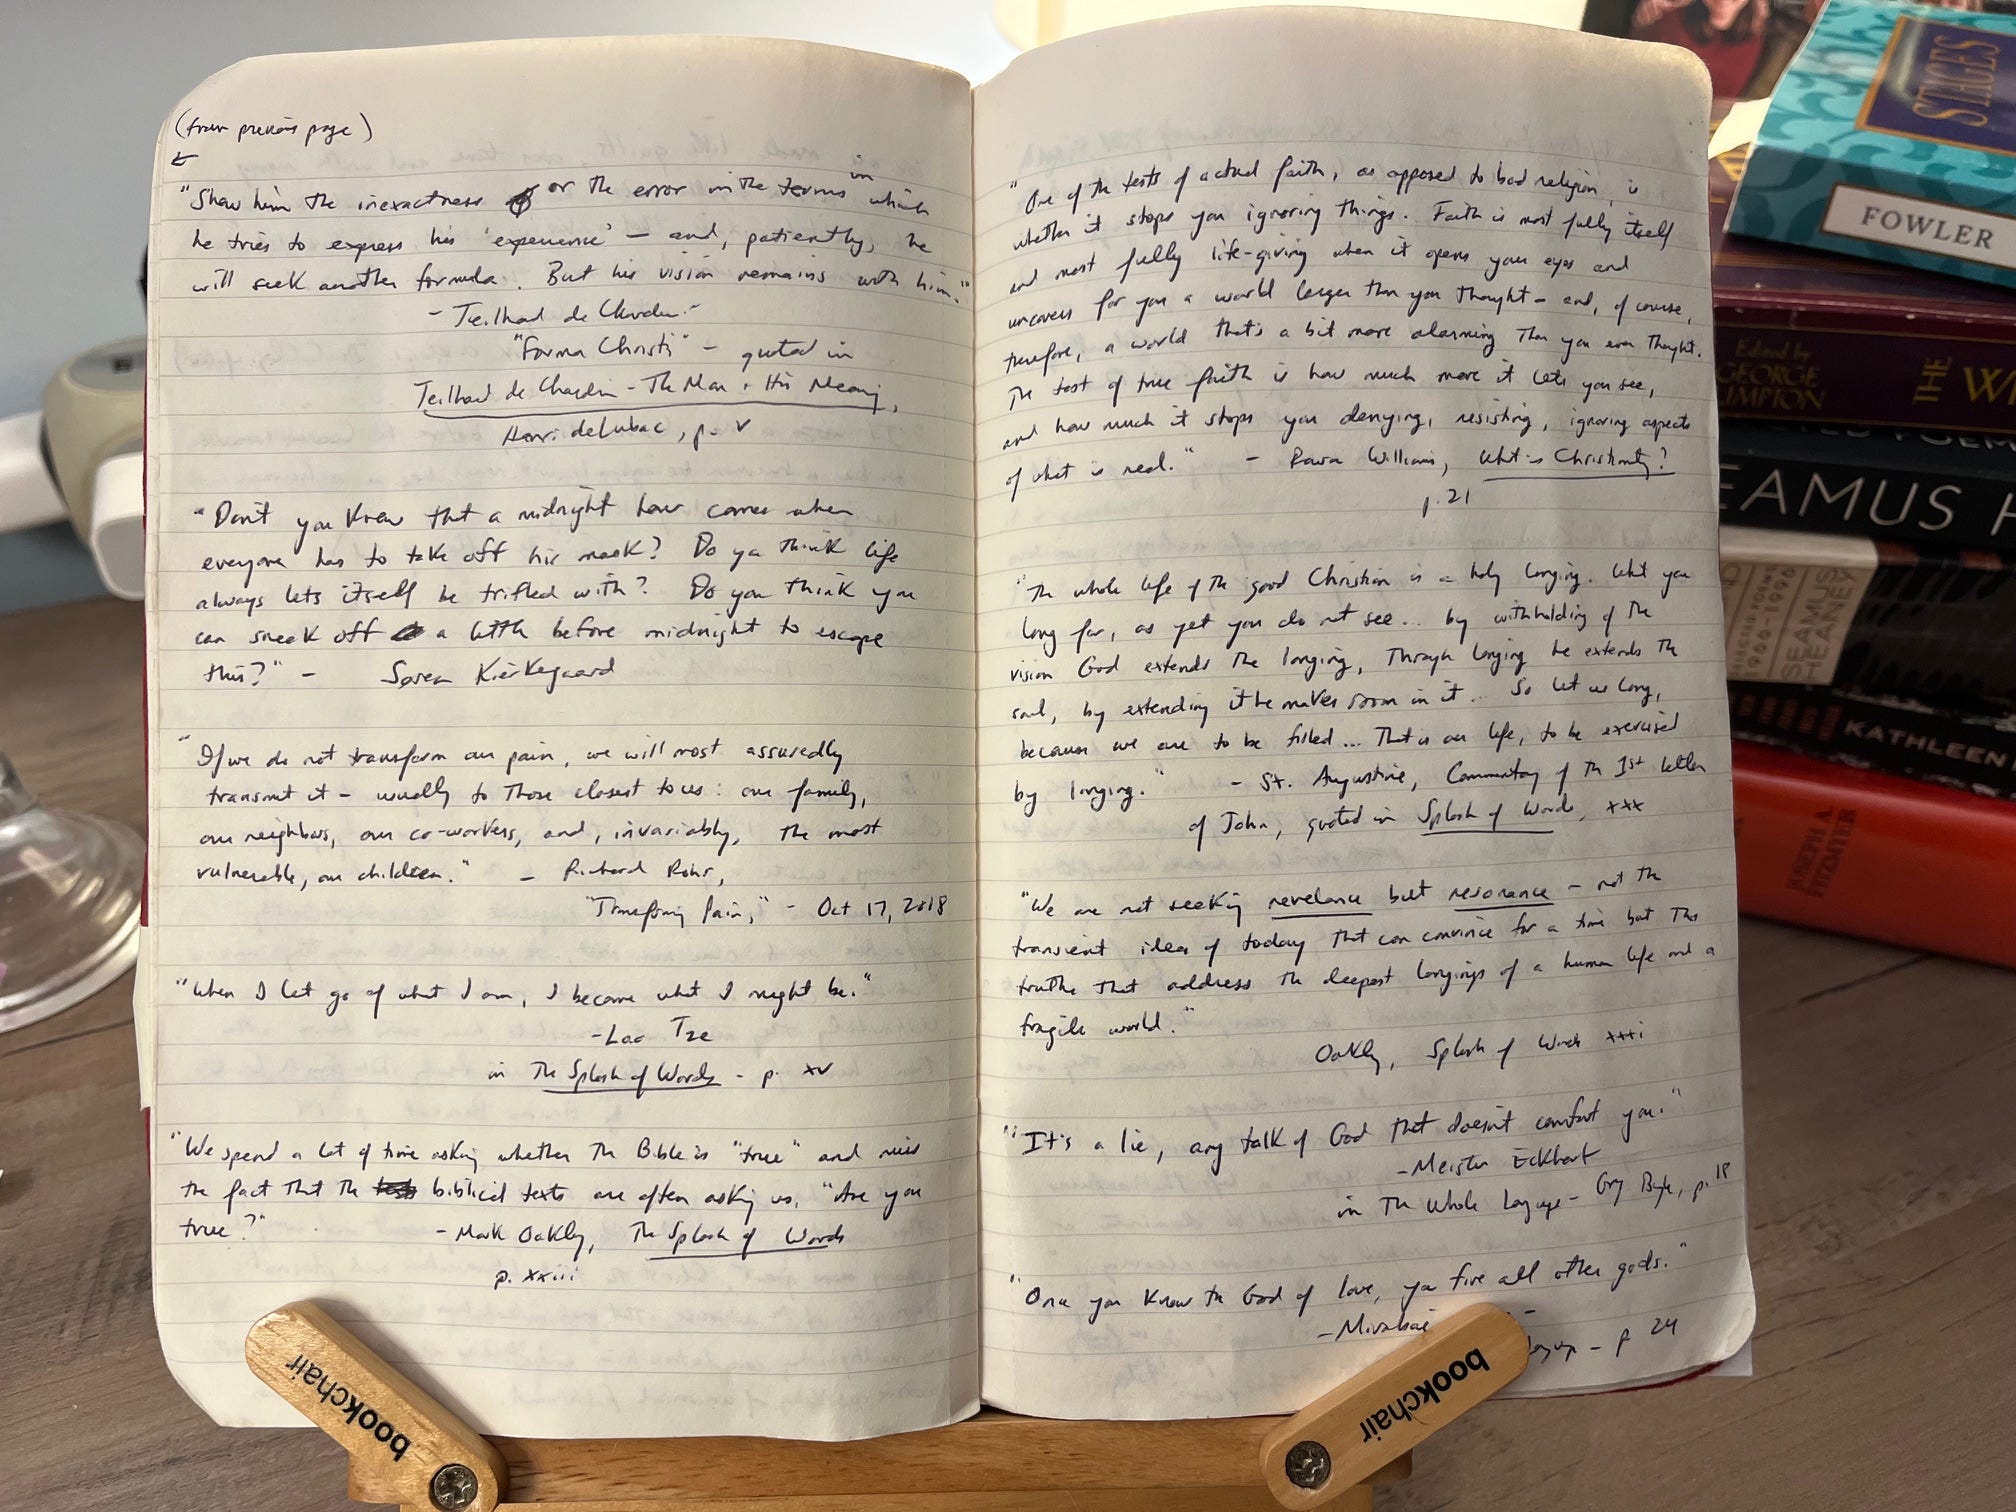 (from previous page)
"Show him the inexactness or the error in the terms in which
he tries to express his 'experience' — and, patiently, he
will seek another formula. But his vision remains with him."
- Teilhard de Chardin -
"Forma Christi" - quoted in
Teilhard de Chardin - The Man + His Meaning,
Henri deLubac, p. v
"Don't you know that a midnight hour comes when
everyone has to take off his mask? Do you think life
always lets itself be trifled with? Do you think you
can sneak off a little before midnight to escape
this?" - Søren Kierkegaard
"If we do not transform our pain, we will most assuredly
transmit it - usually to those closest to us: our family,
our neighbors, our co-workers, and, invariably, the most
vulnerable, our children." - Richard Rohr,
"Transforming Pain," - Oct 17, 2018
"When I let go of what I am, I become what I might be."
- Lao Tze
in The Splash of Words - p. xv
"We spend a lot of time asking whether the Bible is "true" and miss
the fact that the biblical texts are often asking us, "Are you
true?"
- Mark Oakley, The Splash of Words
p. xxiii
"One of the tests of actual faith, as opposed to bad religion, is
whether it stops you ignoring things. Faith is most fully itself
and most fully life-giving when it opens your eyes and
uncovers for you a world larger than you thought - and, of course,
therefore, a world that's a bit more alarming than you ever thought.
The test of true faith is how much more it lets you see,
and how much it stops you denying, resisting, ignoring aspects
of what is real." - Rowan Williams, What is Christianity?
p. 21
"The whole life of the good Christian is a holy longing. What you
long for, as yet you do not see... by withholding of the
vision God extends the longing, through longing he extends the
soul, by extending it he makes room in it... So let us long,
because we are to be filled... That is our life, to be exercised
by longing." - St. Augustine, Commentary of the 1st letter
of John, quoted in Splash of Words, xxx
"We are not seeking relevance but resonance - not the
transient ideas of today that can convince for a time but the
truths that address the deepest longings of a human life and a
fragile world."
Oakley, Splash of Words xxxi
"It's a lie, any talk of God that doesn't comfort you."
- Meister Eckhart
in The Whole Language - Greg Boyle, p. 18
"Once you know the God of love, you fire all other gods."
- Mirabai
- p 24
bookchair
bookchair
STAGES
FOWLER
Edited by
GEORGE
PLIMPTON
THE W
EAMUS H
1966-1996
SEAMUS
HEANEY
KATHLEEN
JOSEPH A
FITZMYER